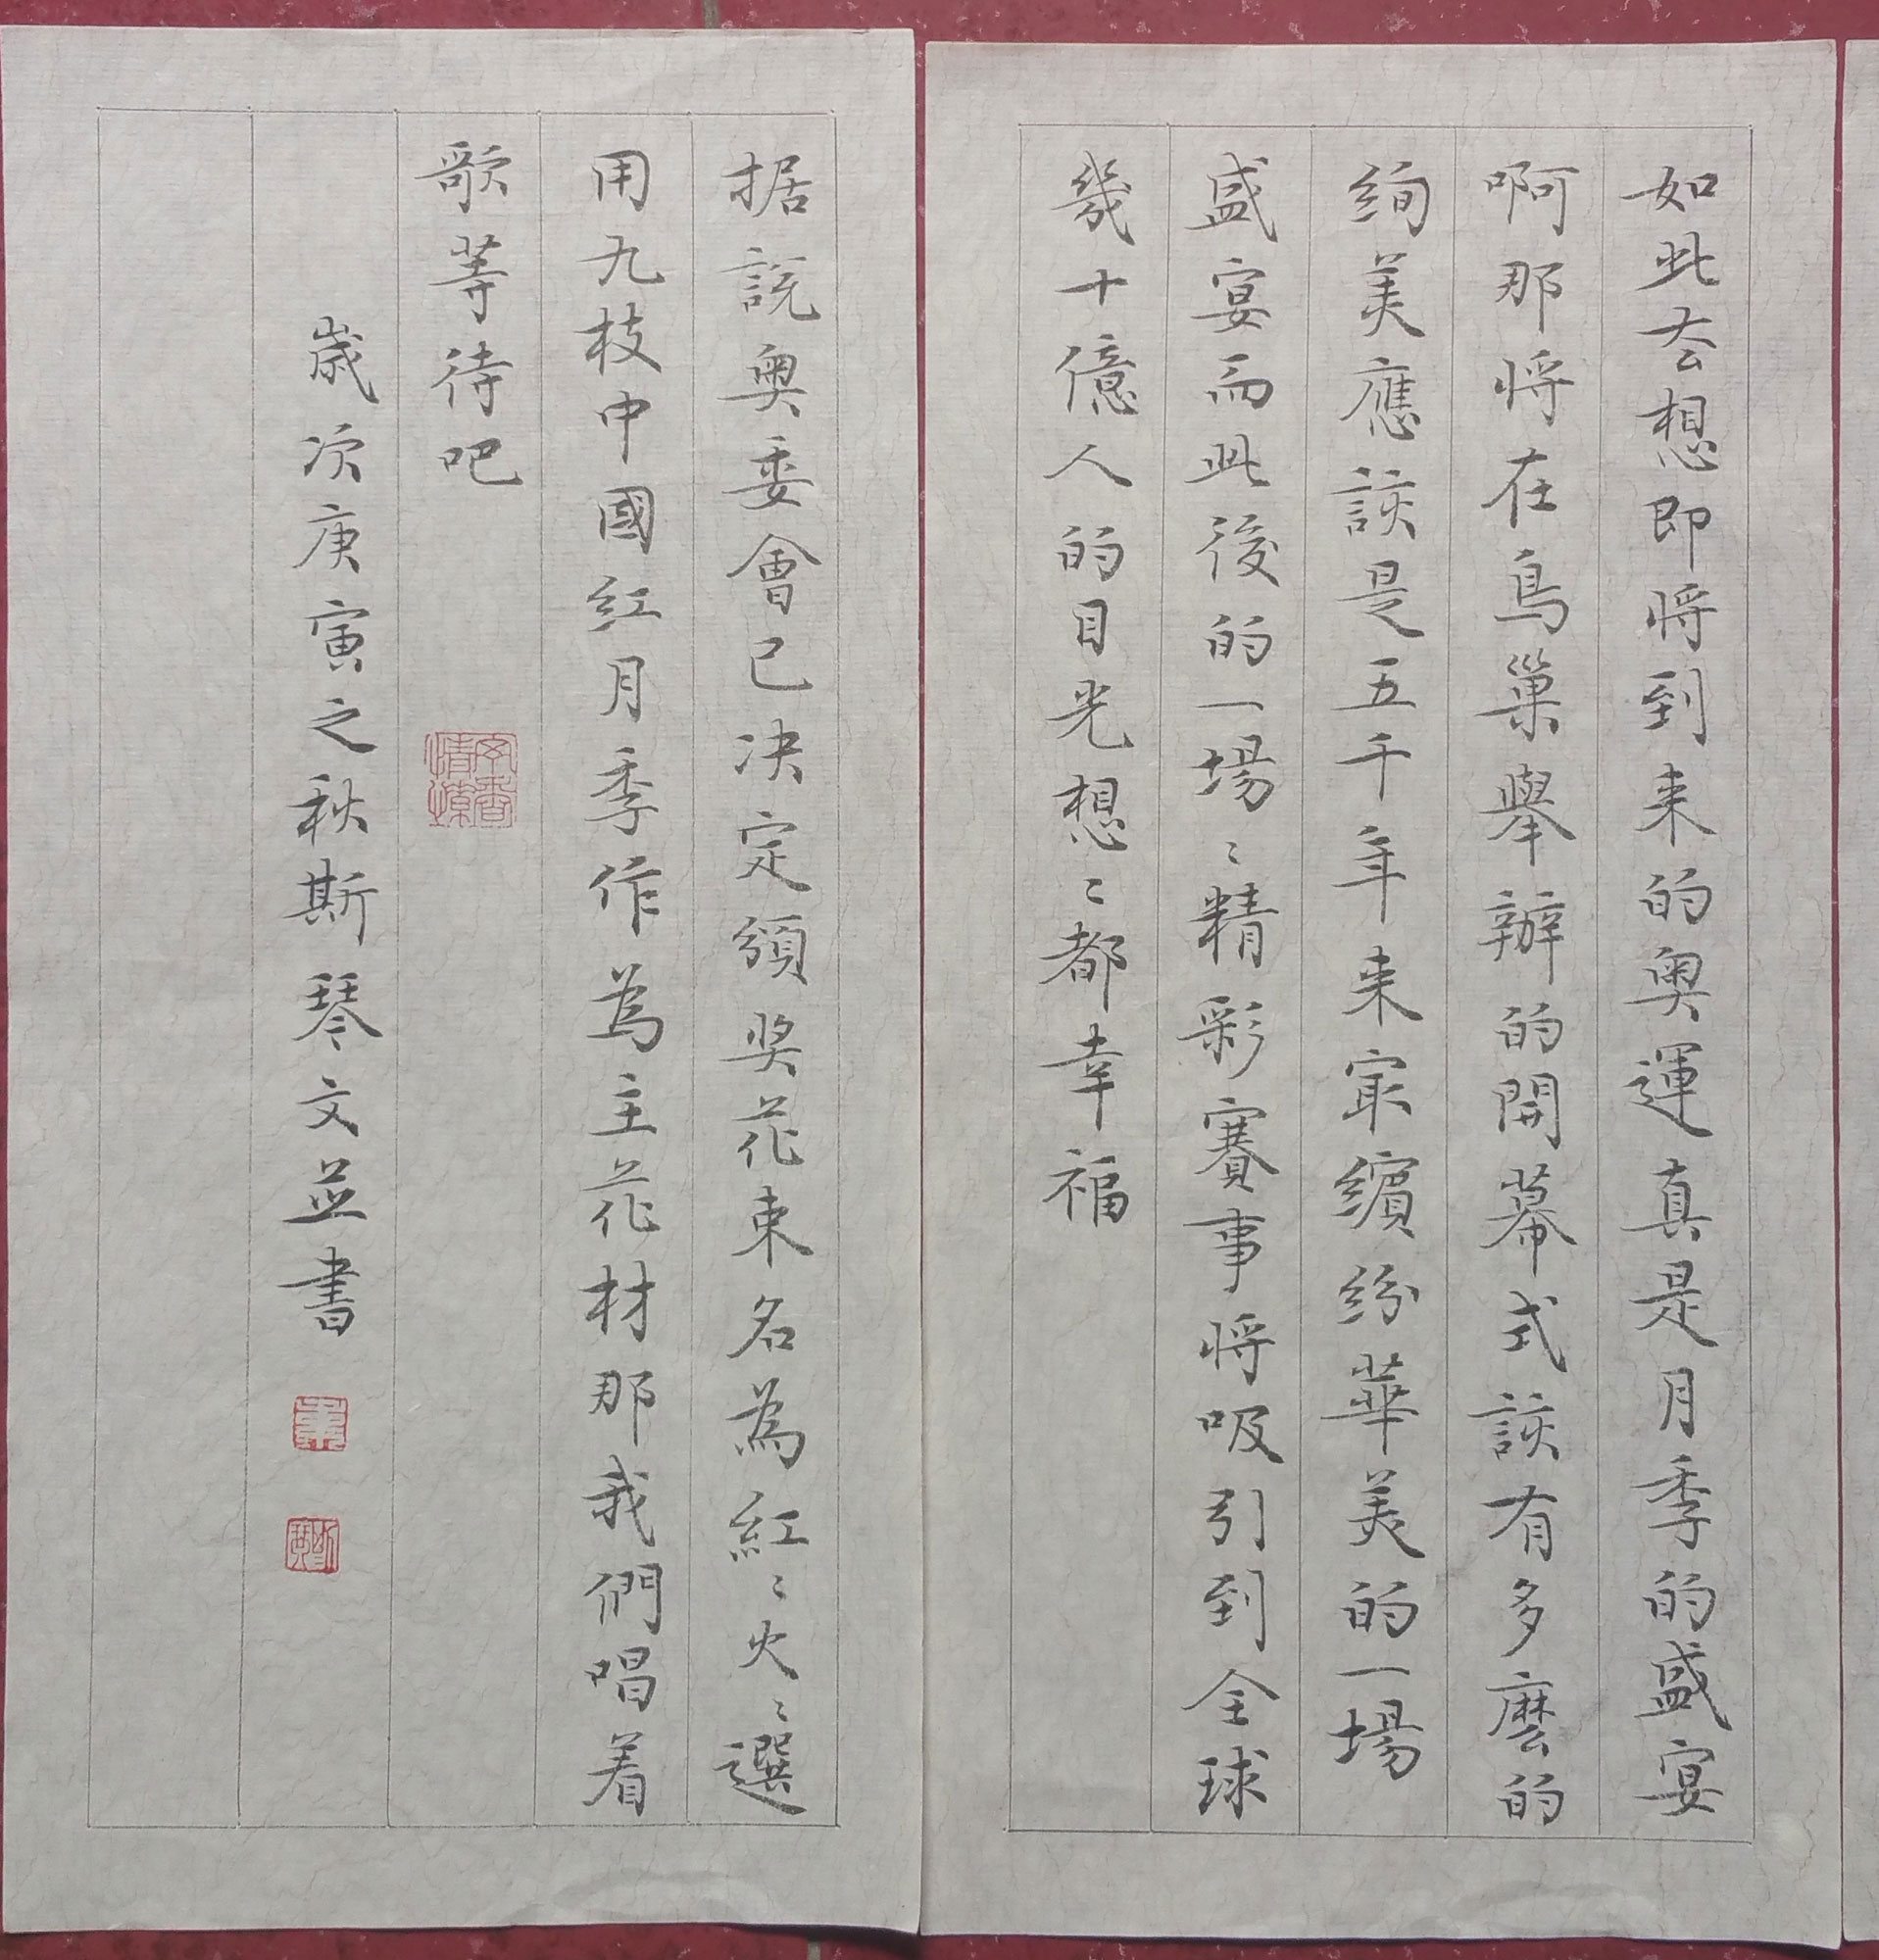 如此去想即将到来的奥運真是月季的盛宴
啊那将在鳥巢舉辦的開幕式該有多麽的
絢美應該是五千年来冣繽紛華美的一場
盛宴而此後的一場〻精彩賽事将吸引到全球
幾十億人的目光想〻都幸福
据說奥委會已决定頒奖花束名為紅〻火〻選
用九枝中國紅月季作為主花材那我們唱着
歌等待吧
歲次庚寅之秋斯琴文並書
斯琴